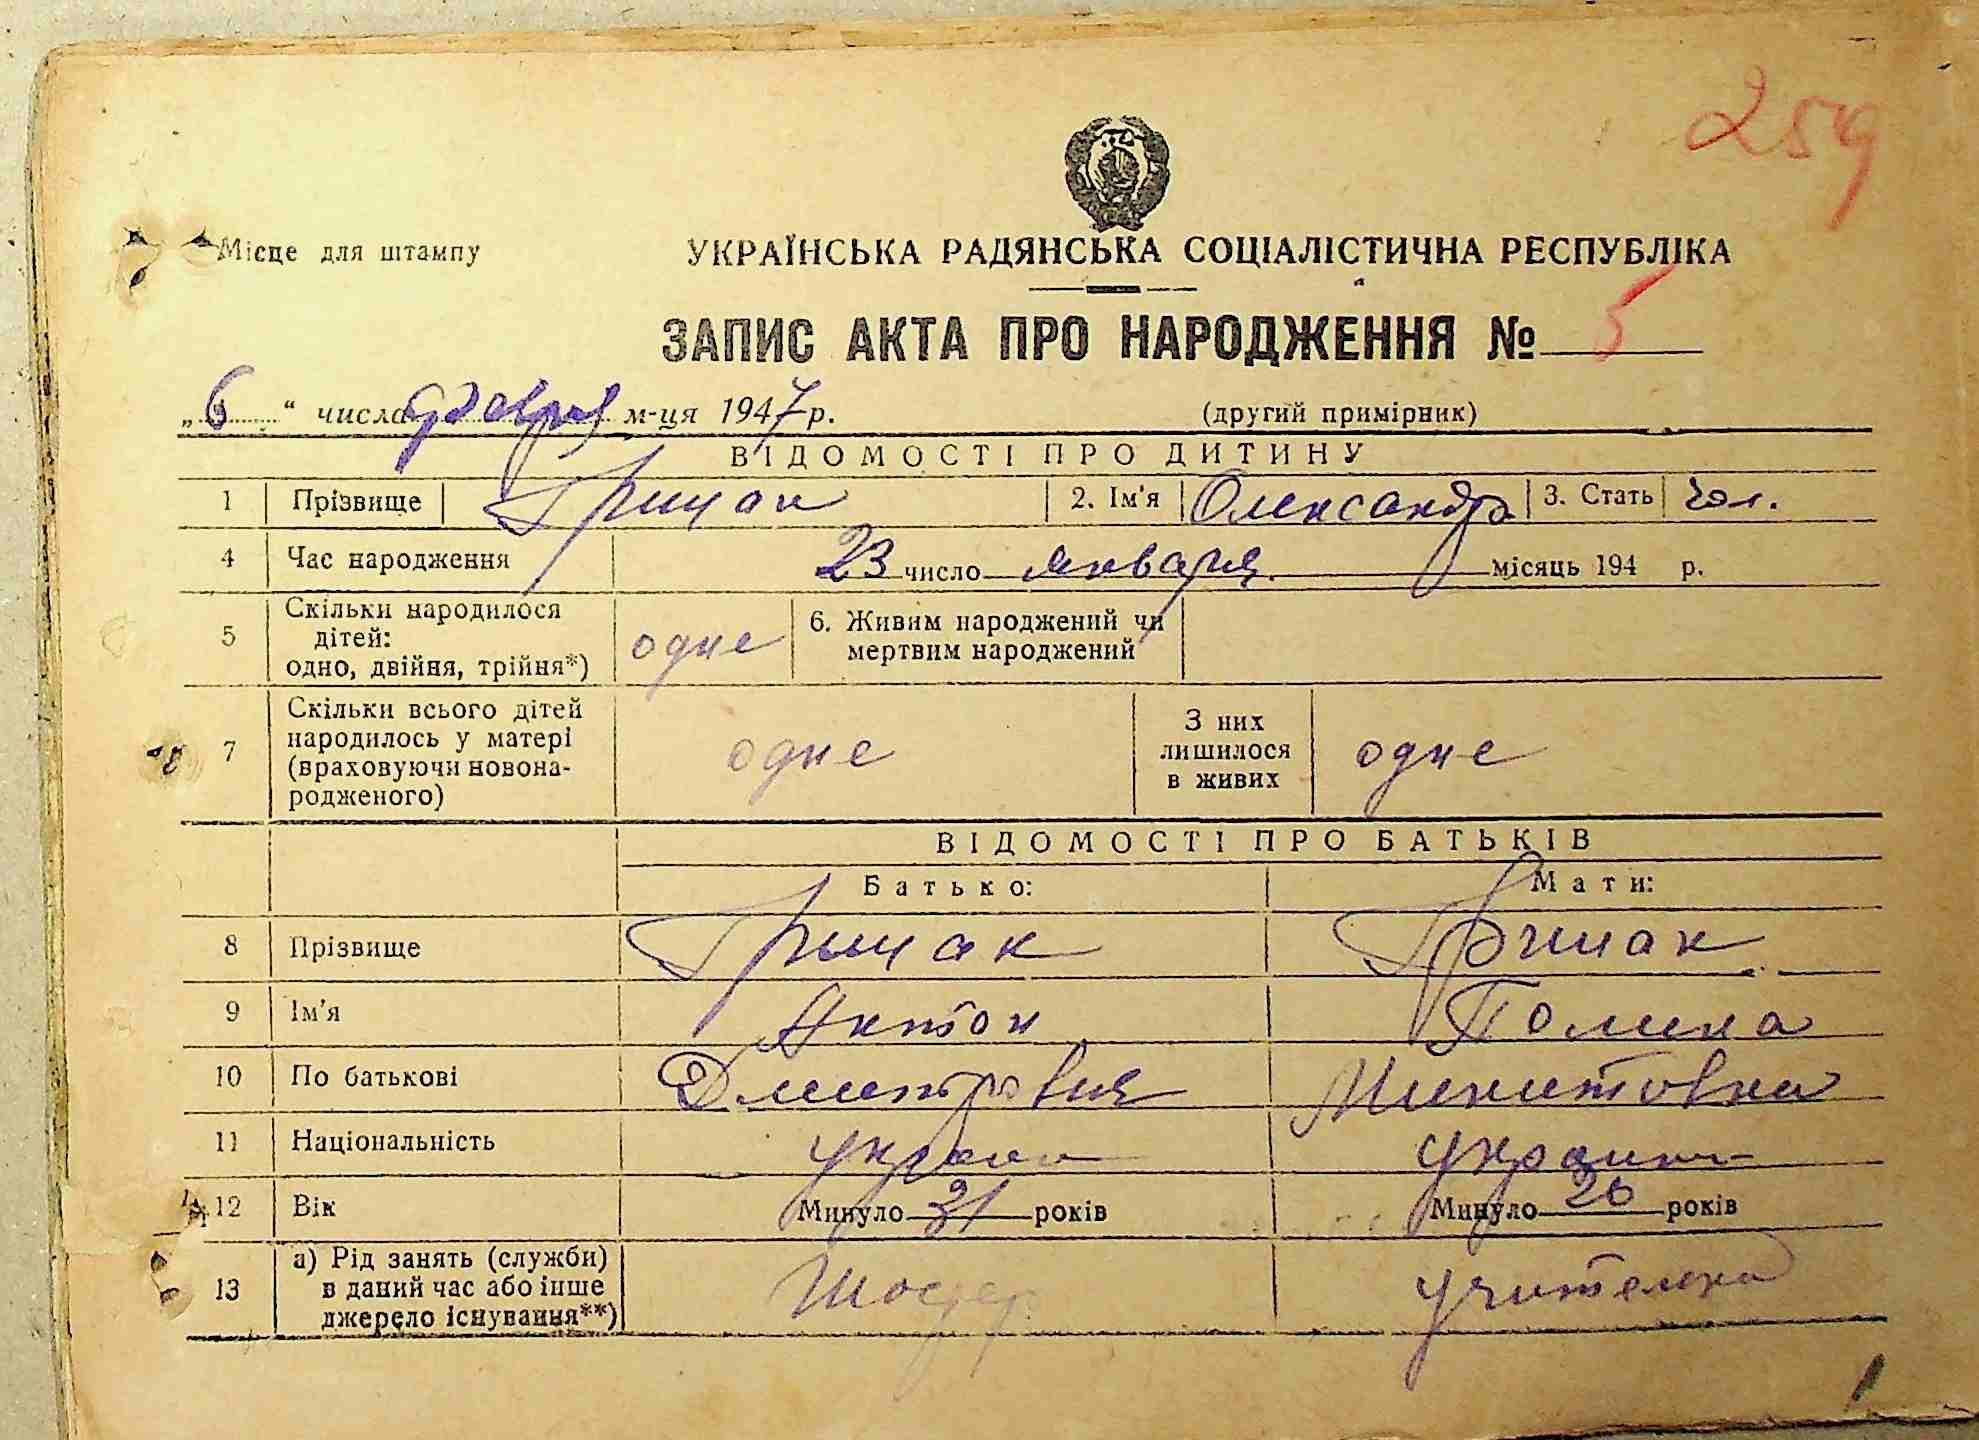 259
Місце для штампу
УКРАЇНСЬКА РАДЯНСЬКА СОЦІАЛІСТИЧНА РЕСПУБЛІКА
ЗАПИС АКТА ПРО НАРОДЖЕННЯ № 5
„6“ числа февраля м-ця 1947 р. (другий примірник)
ВІДОМОСТІ ПРО ДИТИНУ
1 Прізвище Грицак 2. Ім'я Олександр 3. Стать чол.
4 Час народження 23 число января місяць 194 р.
5 Скільки народилося дітей: одно, двійня, трійня*) одне 6. Живим народжений чи мертвим народжений
7 Скільки всього дітей народилось у матері (враховуючи новонародженого) одне З них лишилося в живих одне
ВІДОМОСТІ ПРО БАТЬКІВ
Батько: Мати:
8 Прізвище Грицак Грицак
9 Ім'я Антон Полина
10 По батькові Дмитрович Микитовна
11 Національність
12 Вік Минуло 31 років Минуло 26 років
13 а) Рід занять (служби) в даний час або інше джерело існування**) Шофер учителька